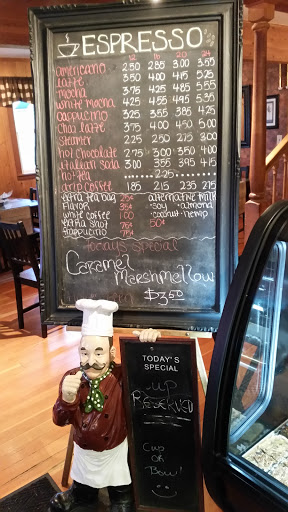 ESPRESSO
12 16 20 24
americano 2.50 2.85 3.00 3.55
latte 3.50 4.00 4.45
mocha 3.75 4.25 4.85 5.55
white mocha 4.25 4.55 4.95 5.35
cappuccino 3.25 3.55 3.85 4.25
chai latte 3.75 4.00 4.50 5.00
steamer 2.25 2.50 2.75 3.00
hot chocolate 2.75 3.00 3.50 4.00
italian soda 3.00 3.55 3.95 4.15
hot tea 2.25
drip coffee 1.85 2.15 2.35 2.75
extra tea bag 25¢ alternative milk
flavor •soy •almond
white coffee 1.00 •coconut •hemp
extra shot 50¢
frappuccino
Todays Special
Caramel
Marshmallow
$3.50
TODAY'S
SPECIAL
Cup
or
Bowl